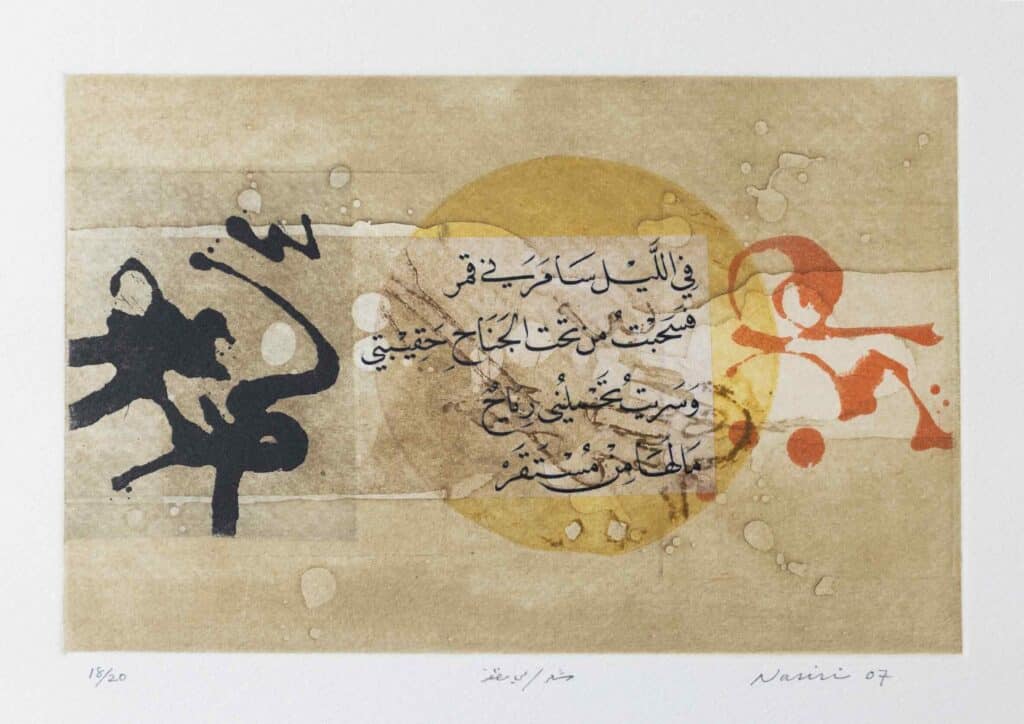 في اللَّيْل سَامَرَني قمر
فسَحَبْتُ من تحْت الجَنَاحِ حَقيْبتي
وَسَريتُ تحْملُني ريَاحٌ
مَا لهَا مِنْ مُسْتَقَرْ
18/20
Nasiri 07